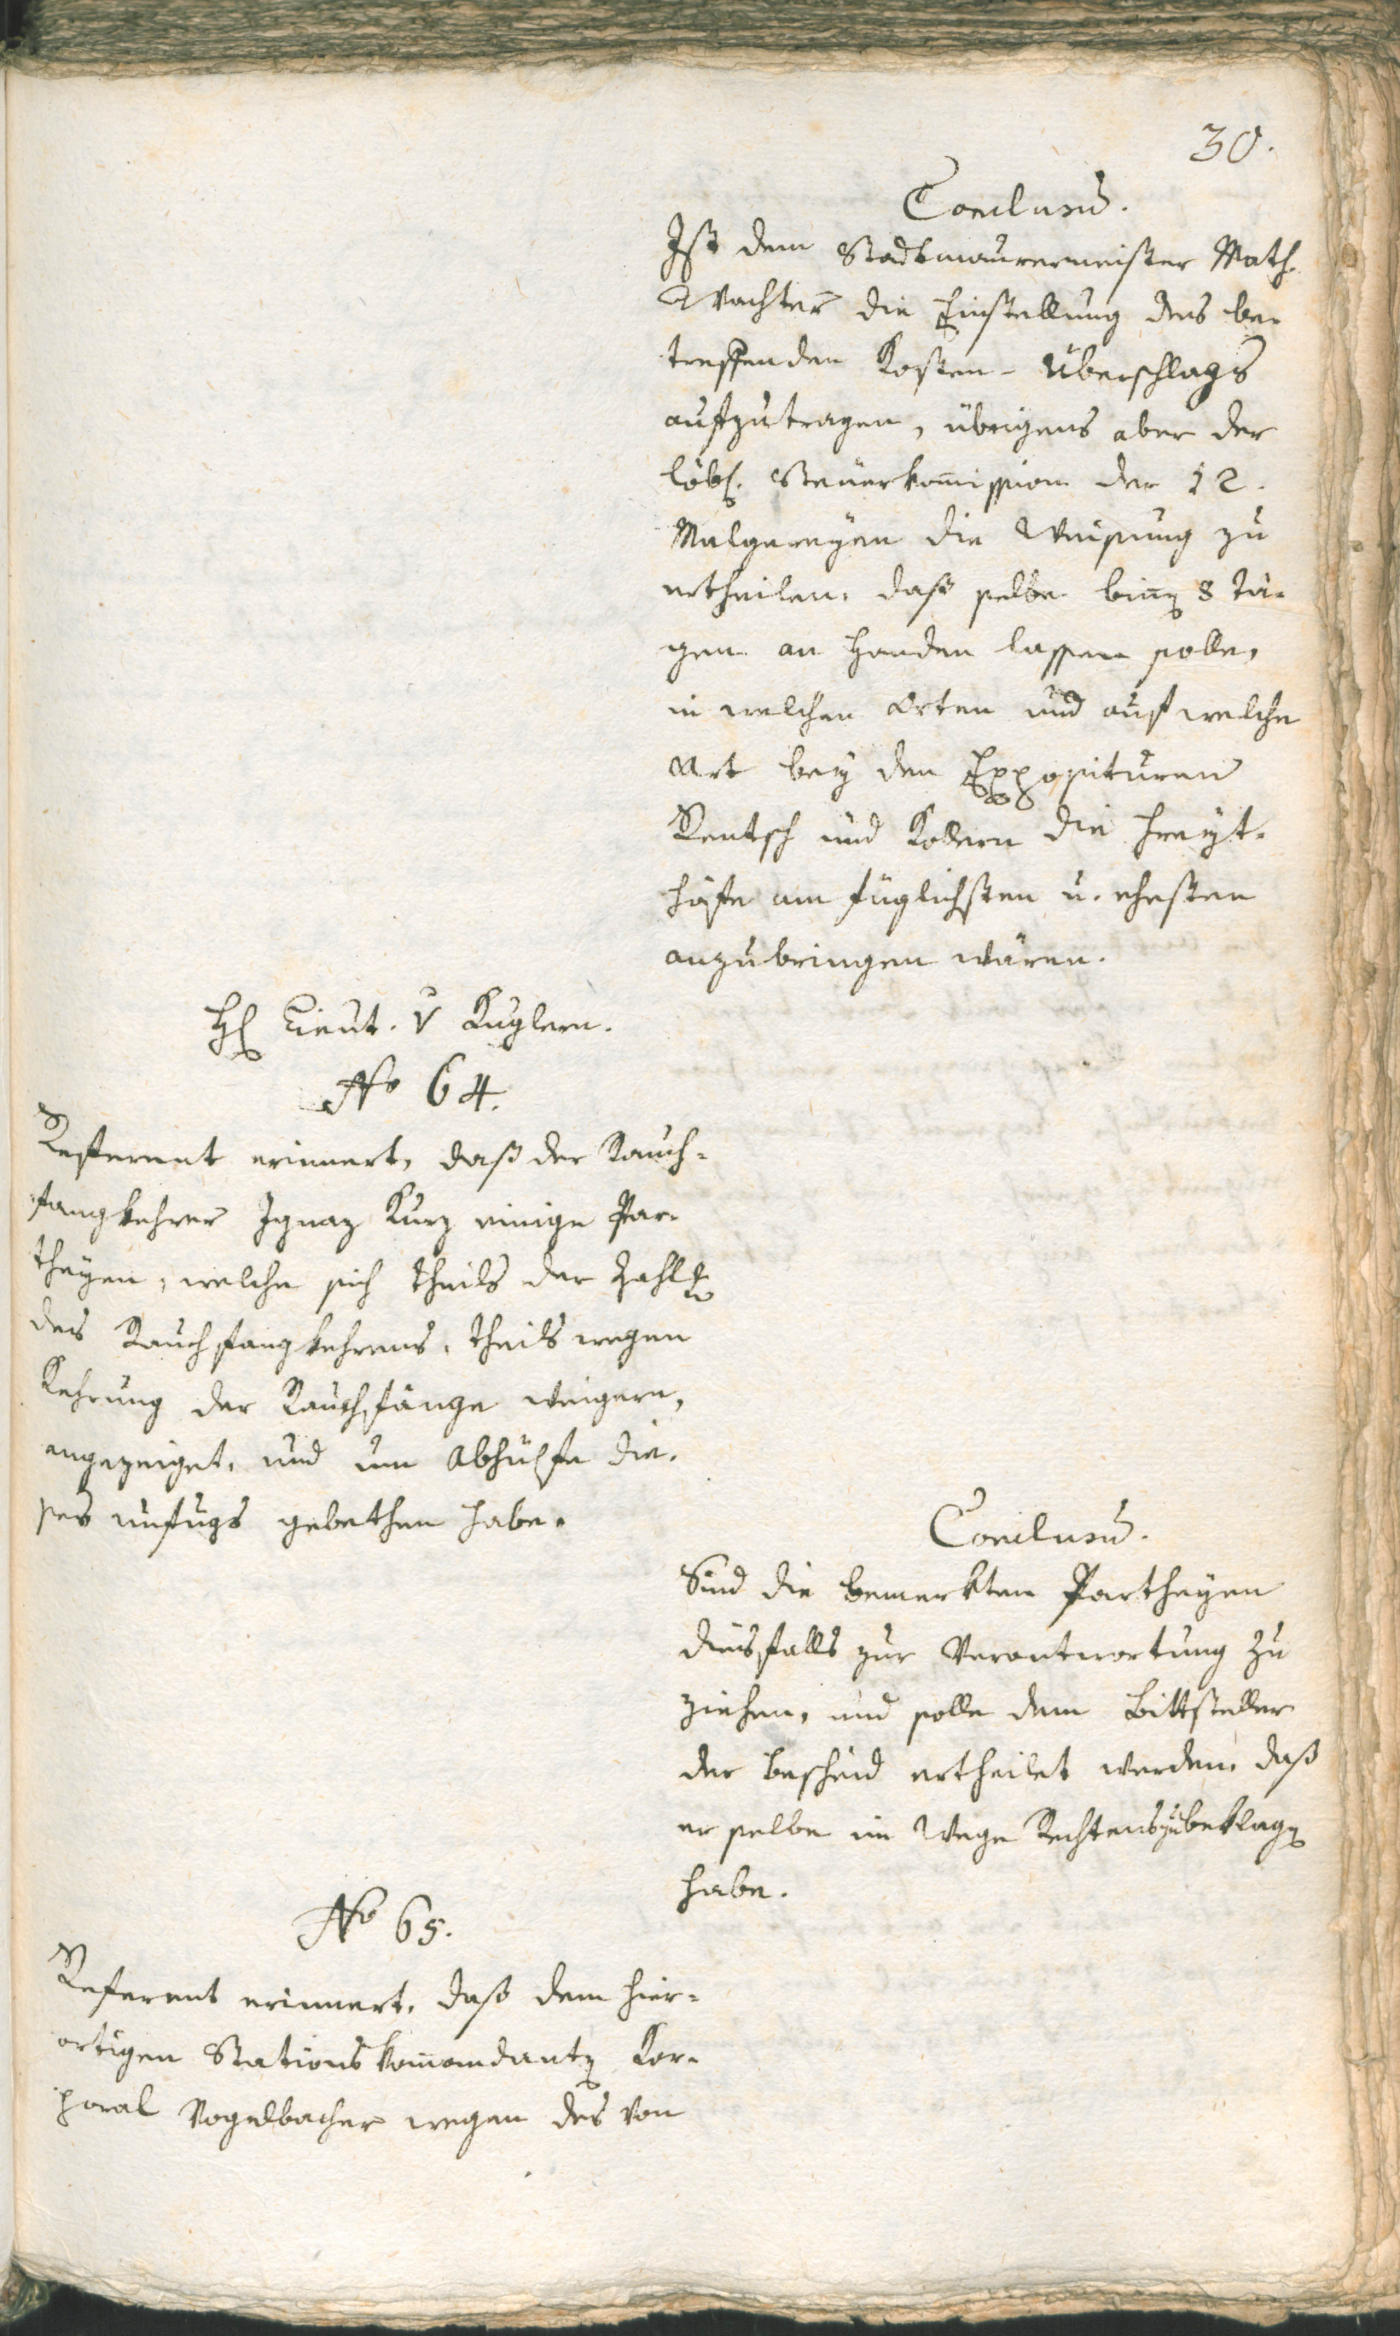 30.
Conclusum̄.
Ist dem Stadtmaurermeister Math.
Wachter die Einstellung des be-
treffenden Kosten-Überschlags
aufzutragen, übrigens aber der
löbl. Steuerkom̄ission der 12.
Malgereyen die Weisung zu
ertheilen, daß selbe bin̄en 8 Tä-
gen an Handen lassen solle,
in welchen Orten und auf welche
Art bey den Exposituren
Rentsch und Kollern die Freyt-
höfe am füglichsten u. ehesten
anzubringen wären.
H. Lieut. v Kuglern.
No 64.
Referent erinnert, daß der Rauch-
fangkehrer Ignaz Kurz einige Par-
theyen, welche sich theils der Zahlg
des Rauchfangkehrens, theils wegen
Kehrung der Rauchfänge weigern,
angezeiget, und um Abhülfe die-
ses Unfugs gebethen habe.
Conclusum̄.
Sind die bemerkten Partheyen
diesfalls zur Verantwortung zu
ziehen, und solle dem Bittsteller
der Bescheid ertheilet werden, daß
er selbe im Wege Rechtens zu beklagen
habe.
No 65.
Referent erinnert, daß dem hier-
ortigen Stationskom̄andanten Kor-
poral Vogelbacher wegen des von